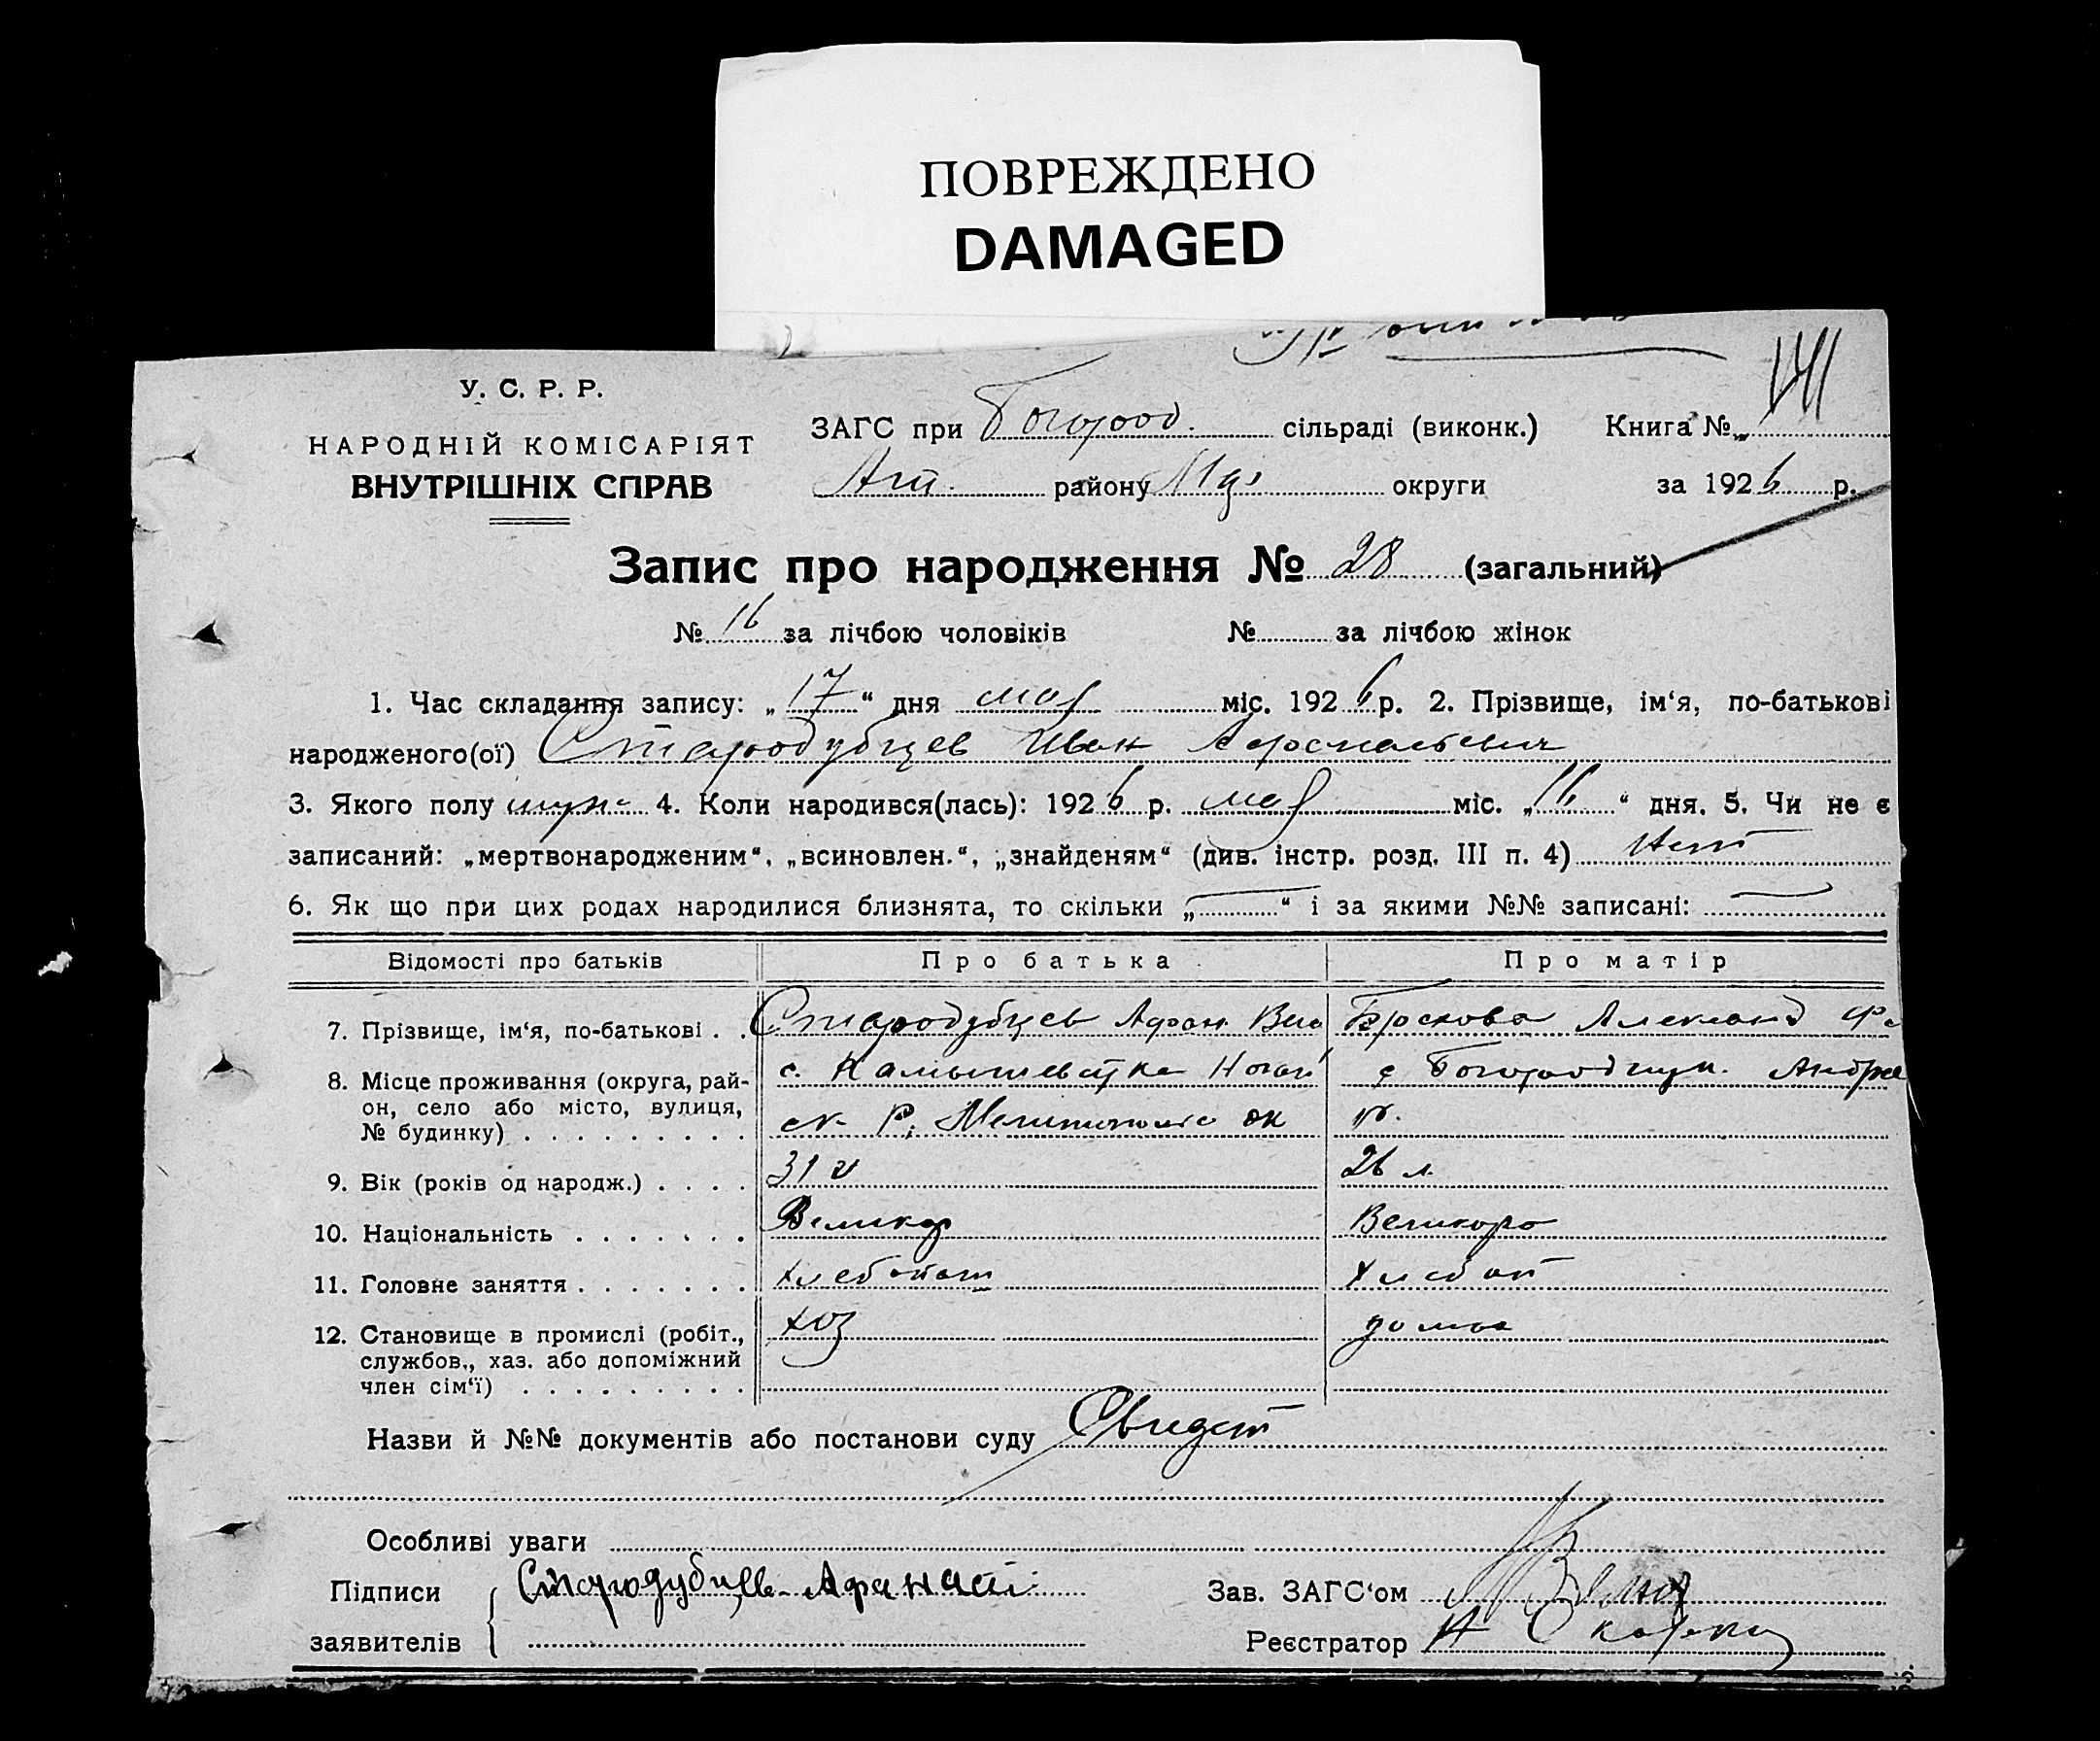 ПОВРЕЖДЕНО
DAMAGED
У. С. Р. Р.
НАРОДНІЙ КОМІСАРІЯТ
ВНУТРІШНІХ СПРАВ
ЗАГС при Богород. сільраді (виконк.) Книга №
району округи за 1926 р.
Запис про народження № 28 (загальний)
№ 16 за лічбою чоловіків № за лічбою жінок
1. Час складання запису: „17“ дня мая міс. 1926 р. 2. Прізвище, ім‘я, по-батькові
народженого(ої) Стародубцев Иван Афонасьевич
3. Якого полу муж. 4. Коли народився(лась): 1926 р. мая міс. „11“ дня. 5. Чи не є
записаний: „мертвонародженим“, „всиновлен.“, „знайденям“ (див. інстр. розд. III п. 4) Нет
6. Як що при цих родах народилися близнята, то скільки „ “ і за якими №№ записані:
Відомості про батьків Про батька Про матір
7. Прізвище, ім‘я, по-батькові . . Стародубцев Афан. Александ
8. Місце проживання (округа, рай- с. Камышеватка с Богородицк.
он, село або місто, вулиця, ск Р; ок
№ будинку)
9. Вік (років од народж.) 31 г 26 л.
10. Національність Великор Великоро
11. Головне заняття хлебопаш хлебоп
12. Становище в промислі (робіт., хоз
службов., хаз. або допоміжний
член сім‘ї)
Назви й №№ документів або постанови суду Свидет
Особливі уваги
Підписи Стародубцев Афанасі Зав. ЗАГС‘ом
заявителів Реєстратор